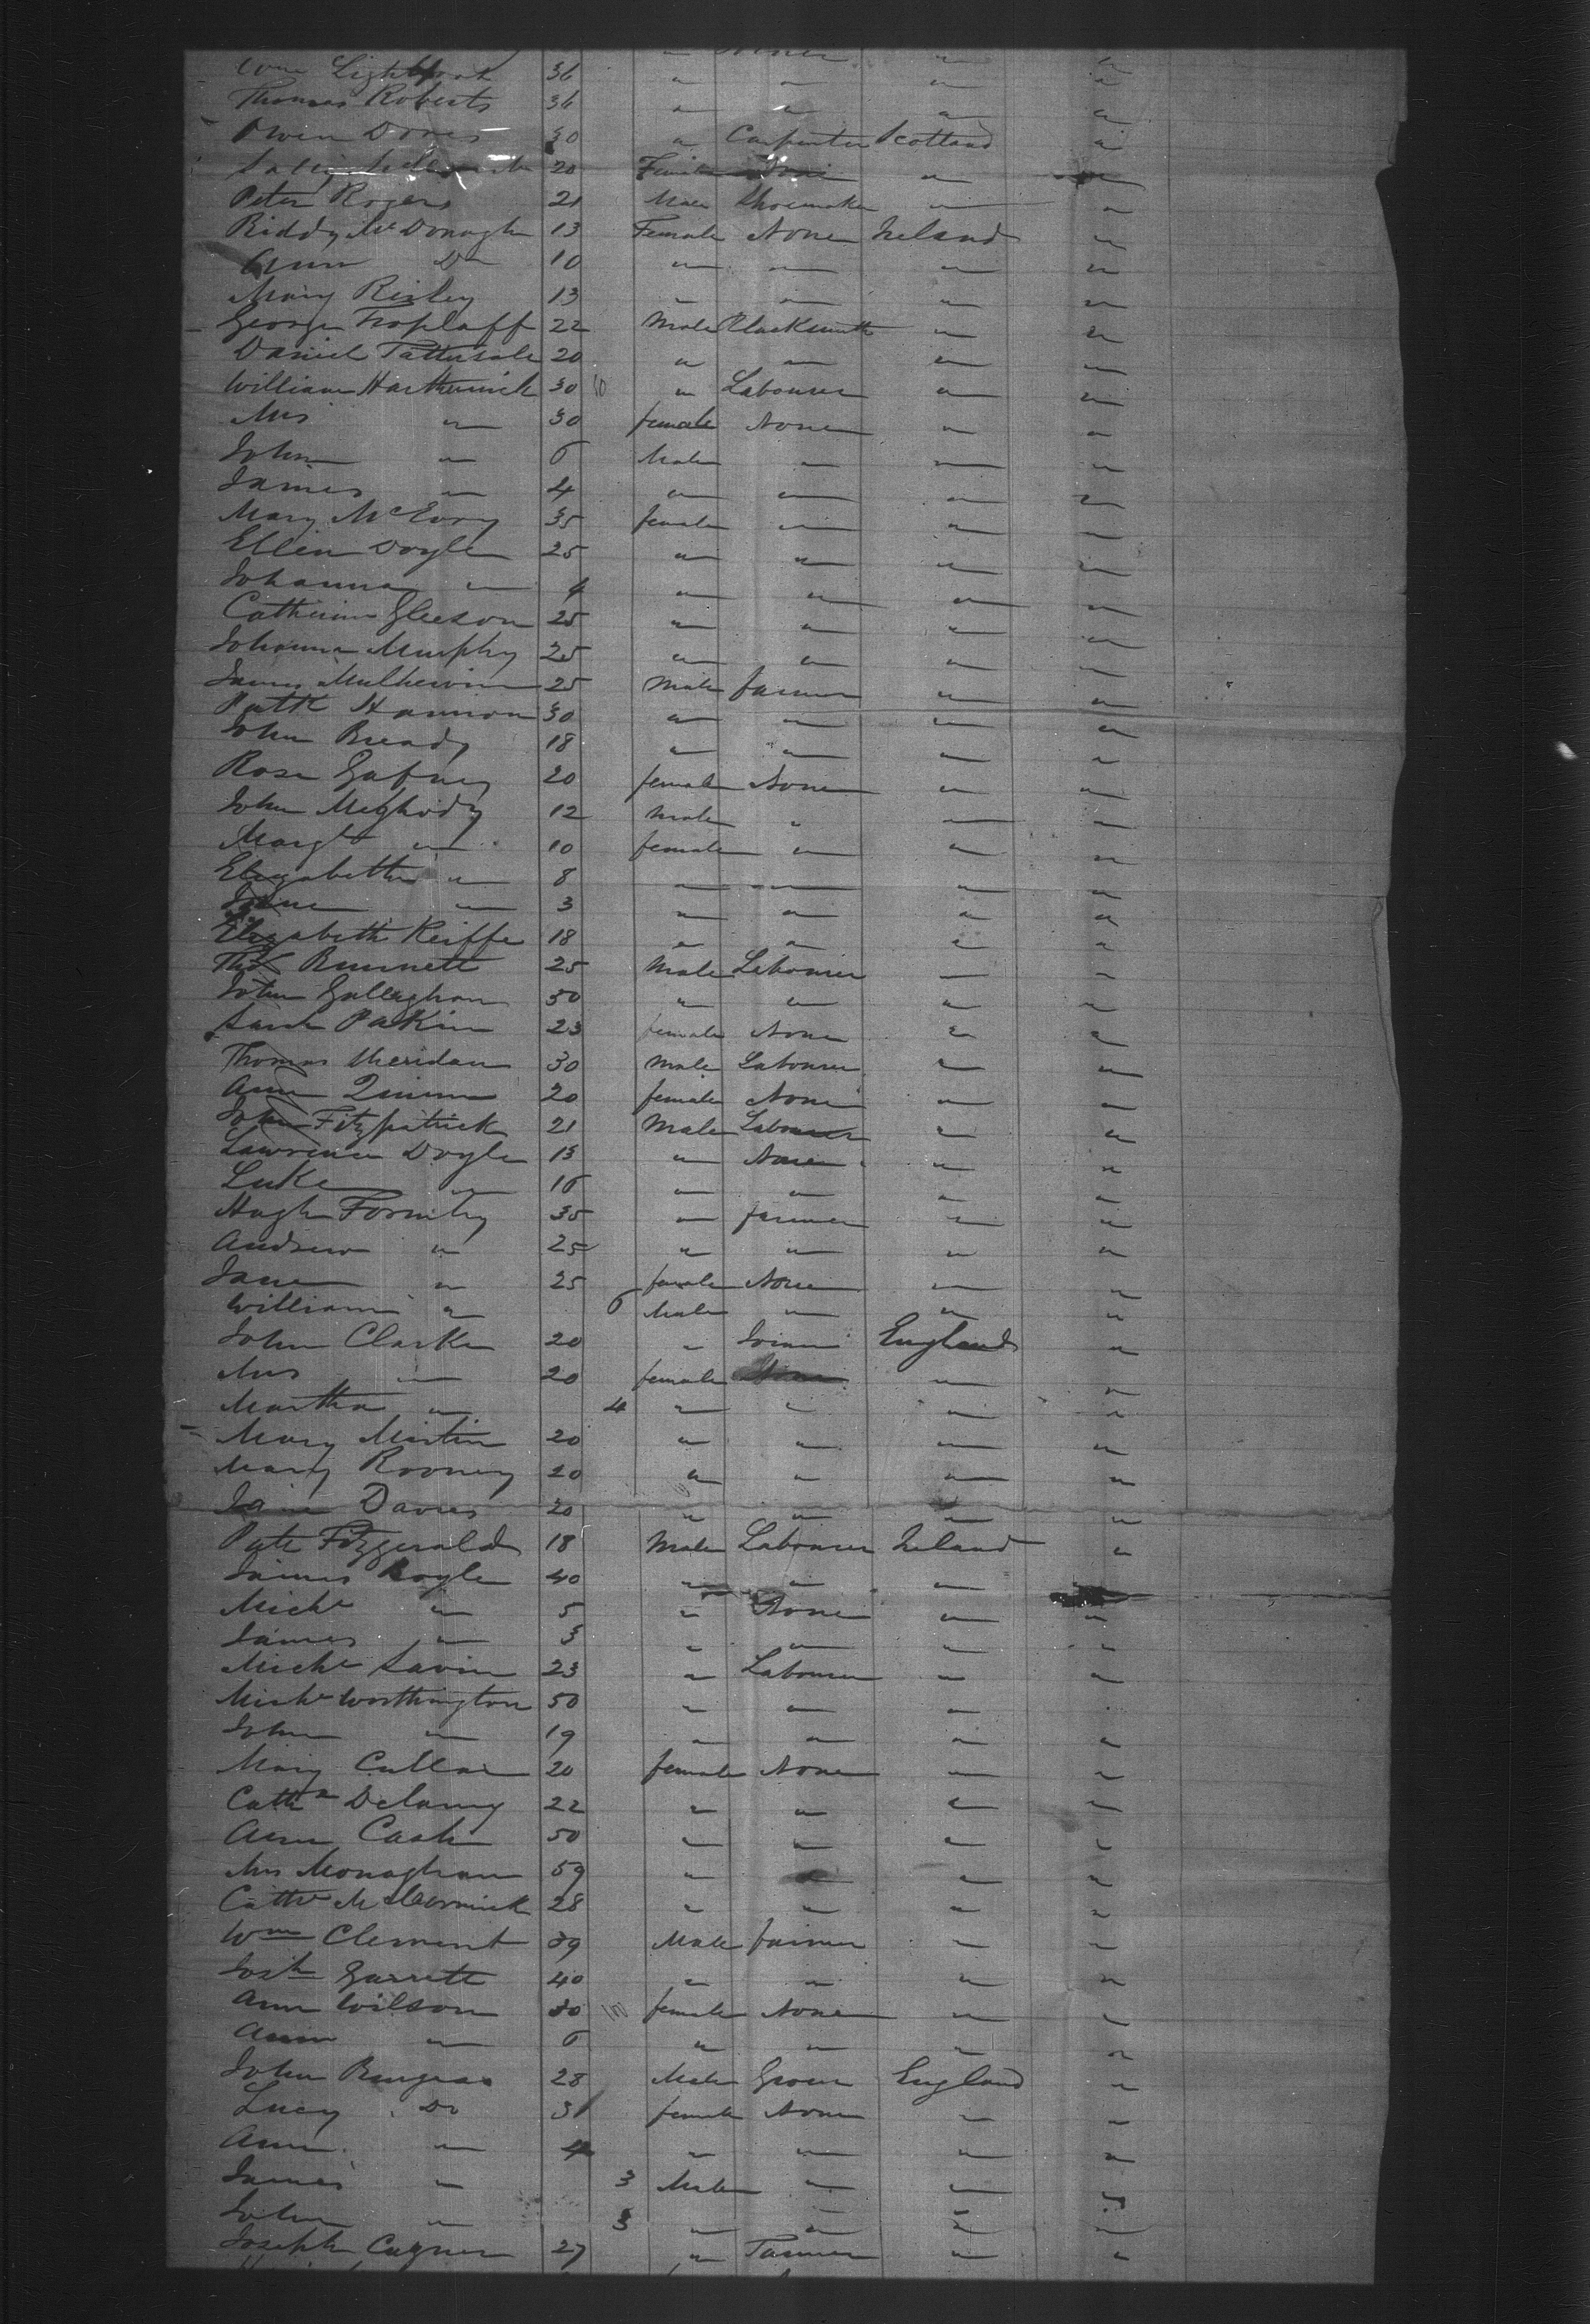 None
Wm Lightfoot 36 " " " "
Thomas Roberts 36 " " " "
Owen 30 " Carpenter Scotland "
20 Female None " "
Peter Rogers 21 Male Shoemaker " "
Biddy McDonagh 13 Female None Ireland "
Ann Do 10 " " " "
Mary Risley 13 " " " "
George 22 Male Blacksmith " "
Daniel Pattersale 20 " " " "
William 30 " Labourer " "
Mrs " 30 female None " "
John " 6 Male " " "
James " 4 " " " "
Mary McEvoy 35 female " " "
Ellen Doyle 25 " " " "
Johanna " 4 " " " "
Catherine Gleeson 25 " " " "
Johanna Murphy 25 " " " "
James 25 Male farmer " "
Patk Hannon 30 " " " "
John Bready 18 " " " "
Rose Gafney 20 female None " "
John 12 Male " " "
Margt " 10 female " " "
Elizabeth " 8 " " " "
Jane " 3 " " " "
Elizabeth Keiffe 18 " " " "
Thos Bunnett 25 Male Labourer " "
John Gallaghan 30 " " " "
Sarah Pakin 23 female None " "
Thomas Sheridan 30 Male Labourer " "
Ann Quinn 20 female None " "
John Fitzpatrick 21 Male Labourer " "
Lawrence Doyle 13 " None " "
Luke " 16 " " " "
Hugh Formby 35 " farmer " "
Andrew " 25 " " " "
Jane " 25 female None " "
William " 6 Male " " "
John Clarke 20 " Joiner England "
Mrs " 20 female None " "
Martha " 4 " " " "
Mary Martin 20 " " " "
Mary Rooney 20 " " " "
Jane Davies 20 " " " "
Patk Fitzgerald 18 Male Labourer Ireland "
James Boyle 40 " " " "
Michl " 5 " None " "
James " 3 " " " "
Michl Savin 23 " Labourer " "
Michl Worthington 50 " " "
John " 19 " " " "
Mary Cullar 20 female None " "
Cathn Delany 22 " " " "
Ann Cash 50 " " " "
Mrs Monaghan 59 " " " "
Cathe McCormick 28 " " " "
Wm Clement 39 Male farmer " "
Josh Garrett 40 " " " "
Ann Wilson 30 female None " "
Ann " 6 " " " "
John 28 Male Grocer England "
Lucy Do 31 female None " "
Ann " 4 " " " "
James " 3 Male " " "
John " 3 " " " "
Joseph 27 " Tanner " "